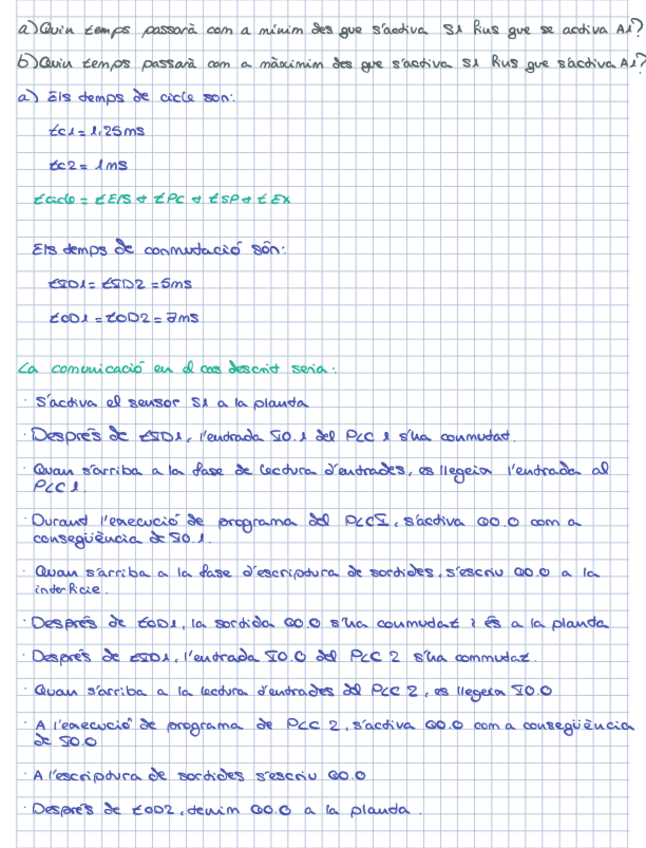 a) Quin temps passarà com a mínim des que s'activa S1 fins que se activa A1?
b) Quin temps passarà com a màximim des que s'activa S1 fins que s'activa A1?
a) Els temps de cicle son:
tc1 = 1,25ms
tc2 = 1ms
tcicle = tE/S + tPC + tSP + tEX
Els temps de conmutació són:
tID1 = tID2 = 5ms
tOD1 = tOD2 = 7ms
La comunicació en el cas descrit seria:
· S'activa el sensor S1 a la planta
· Després de tID1, l'entrada I0.1 del PLC 1 s'ha conmutat.
· Quan s'arriba a la fase de lectura d'entrades, es llegeix l'entrada al
PLC 1.
· Durant l'execució de programa del PLC1, s'activa Q0.0 com a
conseqüència de I0.1.
· Quan s'arriba a la fase d'escriptura de sortides, s'escriu Q0.0 a la
interfície.
· Després de tOD1, la sortida Q0.0 s'ha conmutat i és a la planta
· Després de tID1, l'entrada I0.0 del PLC 2 s'ha commutat.
· Quan s'arriba a la lectura d'entrades del PLC 2, es llegeix I0.0
· A l'execució de programa de PLC 2, s'activa Q0.0 com a conseqüència
de I0.0
· A l'escriptura de sortides s'escriu Q0.0
· Després de tOD2, tenim Q0.0 a la planta.